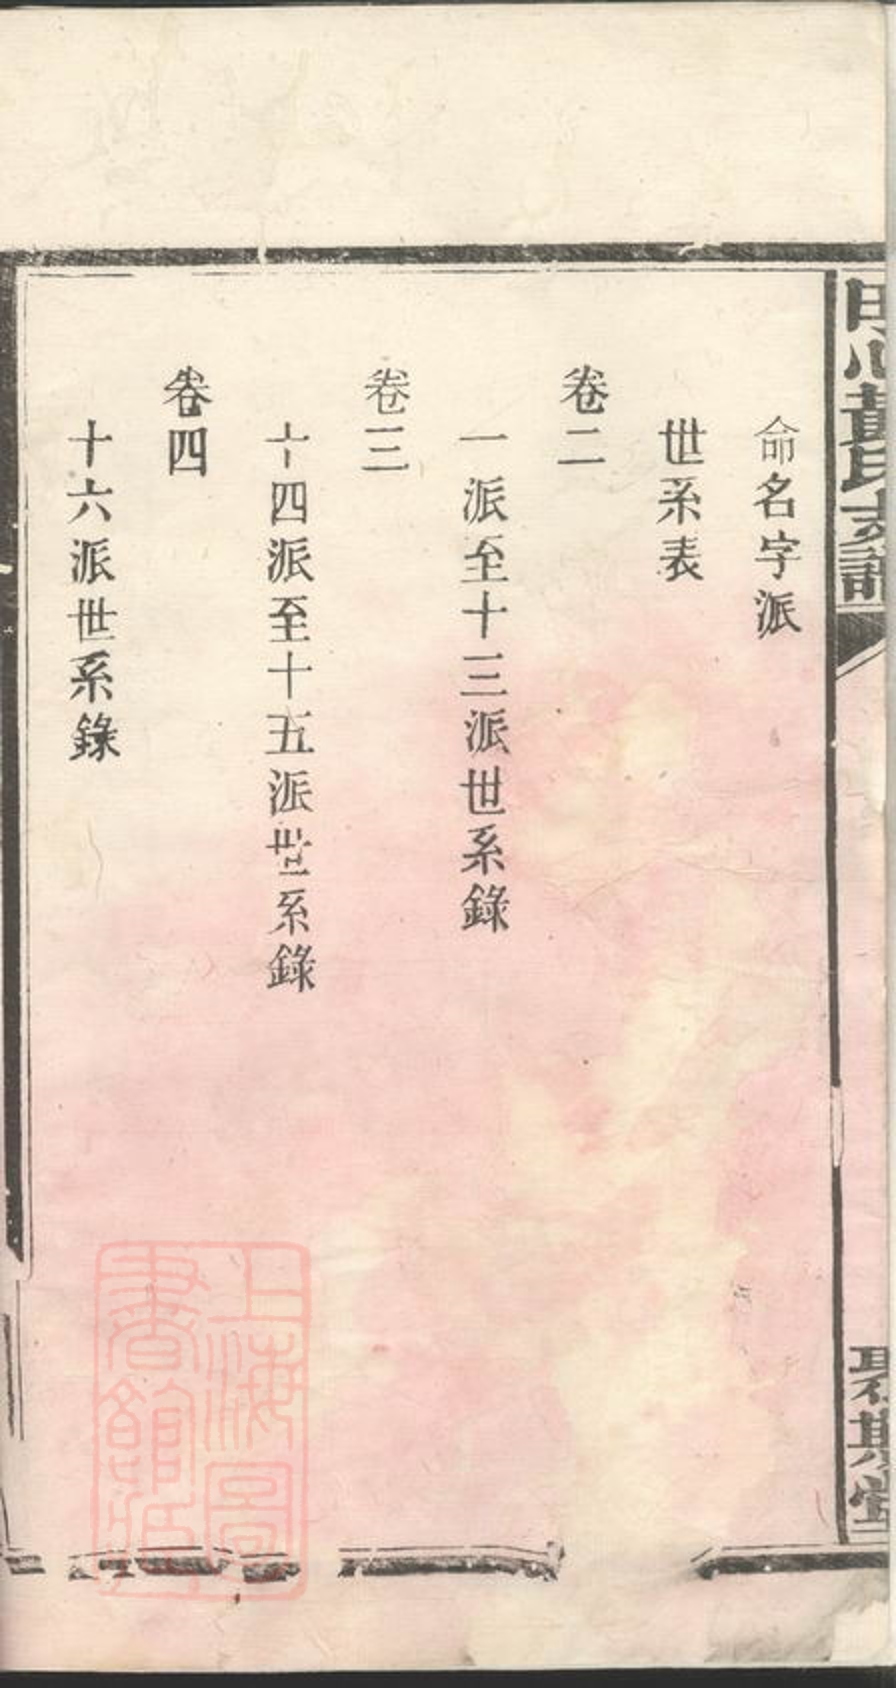 黃氏支譜
命名字派
世系表
卷二
一派至十三派世系錄
卷三
十四派至十五派世系錄
卷四
十六派世系錄
上海圖
書館藏